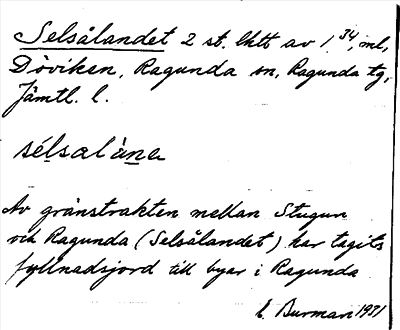 Selsålandet 2 st. lhtt av 1 34, ml,
Döviken, Ragunda sn, Ragunda tg,
Jämtl. l.
sélsalàna
Av gränstrakten mellan Stugun
och Ragunda (Selsålandet) har tagits
fyllnadsjord till byar i Ragunda
L. Burman 1971